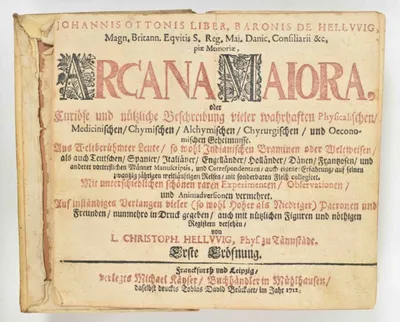 JOHANNIS OTTONIS LIBER, BARONIS DE HELLWIG,
Magn. Britann. Eqvitis S. Reg. Mai. Danic. Consiliarii &c,
piæ Memoriæ,
ARCANA MAIORA,
oder
Curiöse und nützliche Beschreibung vieler wahrhafften Physicalischen,
Medicinischen / Chymischen / Alchymischen / Chyrurgischen / und Oecono-
mischen Geheimnisse.
Aus Weltberühmter Leute / so wohl Indianischen Braminen oder Weltweisen /
als auch Teutschen / Spanier / Italiäner / Engelländer / Holländer / Dänen / Frantzosen / und
anderer vortrefflichen Männer Manuscripts, und Correspondenten / auch eigener Erfahrung / auf seinen
zwantzig jährigen weitläufftigen Reisen / mit sonderbaren Fleiß collegiret.
Mit unterschiedlichen schönen raren Experimenten / Observationen /
und Animadversionen vermehret.
Auf inständiges Verlangen vieler (so wohl Hoher als Niedriger) Patronen und
Freunden / nunmehro in Druck gegeben / auch mit nützlichen Figuren und nöthigen
Registern versehen /
von
L. CHRISTOPH. HELLWIG, Phys. zu Tännstädt.
Erste Eröfnung.
Franckfurth und Leipzig /
verlegts Michael Kayser / Buchhändler in Mühlhausen /
daselbst druckts Tobias David Brückner / im Jahr 1712.